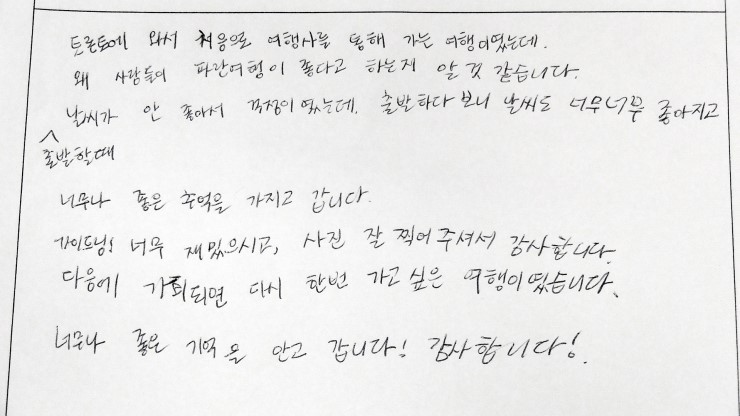 토론토에 와서 처음으로 여행사를 통해 가는 여행이였는데.
왜 사람들이 파란여행이 좋다고 하는지 알 것 같습니다.
날씨가 안 좋아서 걱정이였는데. 출발하다 보니 날씨도 너무너무 좋아지고
출발할때
너무나 좋은 추억을 가지고 갑니다.
가이드님! 너무 재밌으시고, 사진 잘 찍어주셔서 감사합니다.
다음에 기회되면 다시 한번 가고 싶은 여행이였습니다.
너무나 좋은 기억을 안고 갑니다! 감사합니다!.